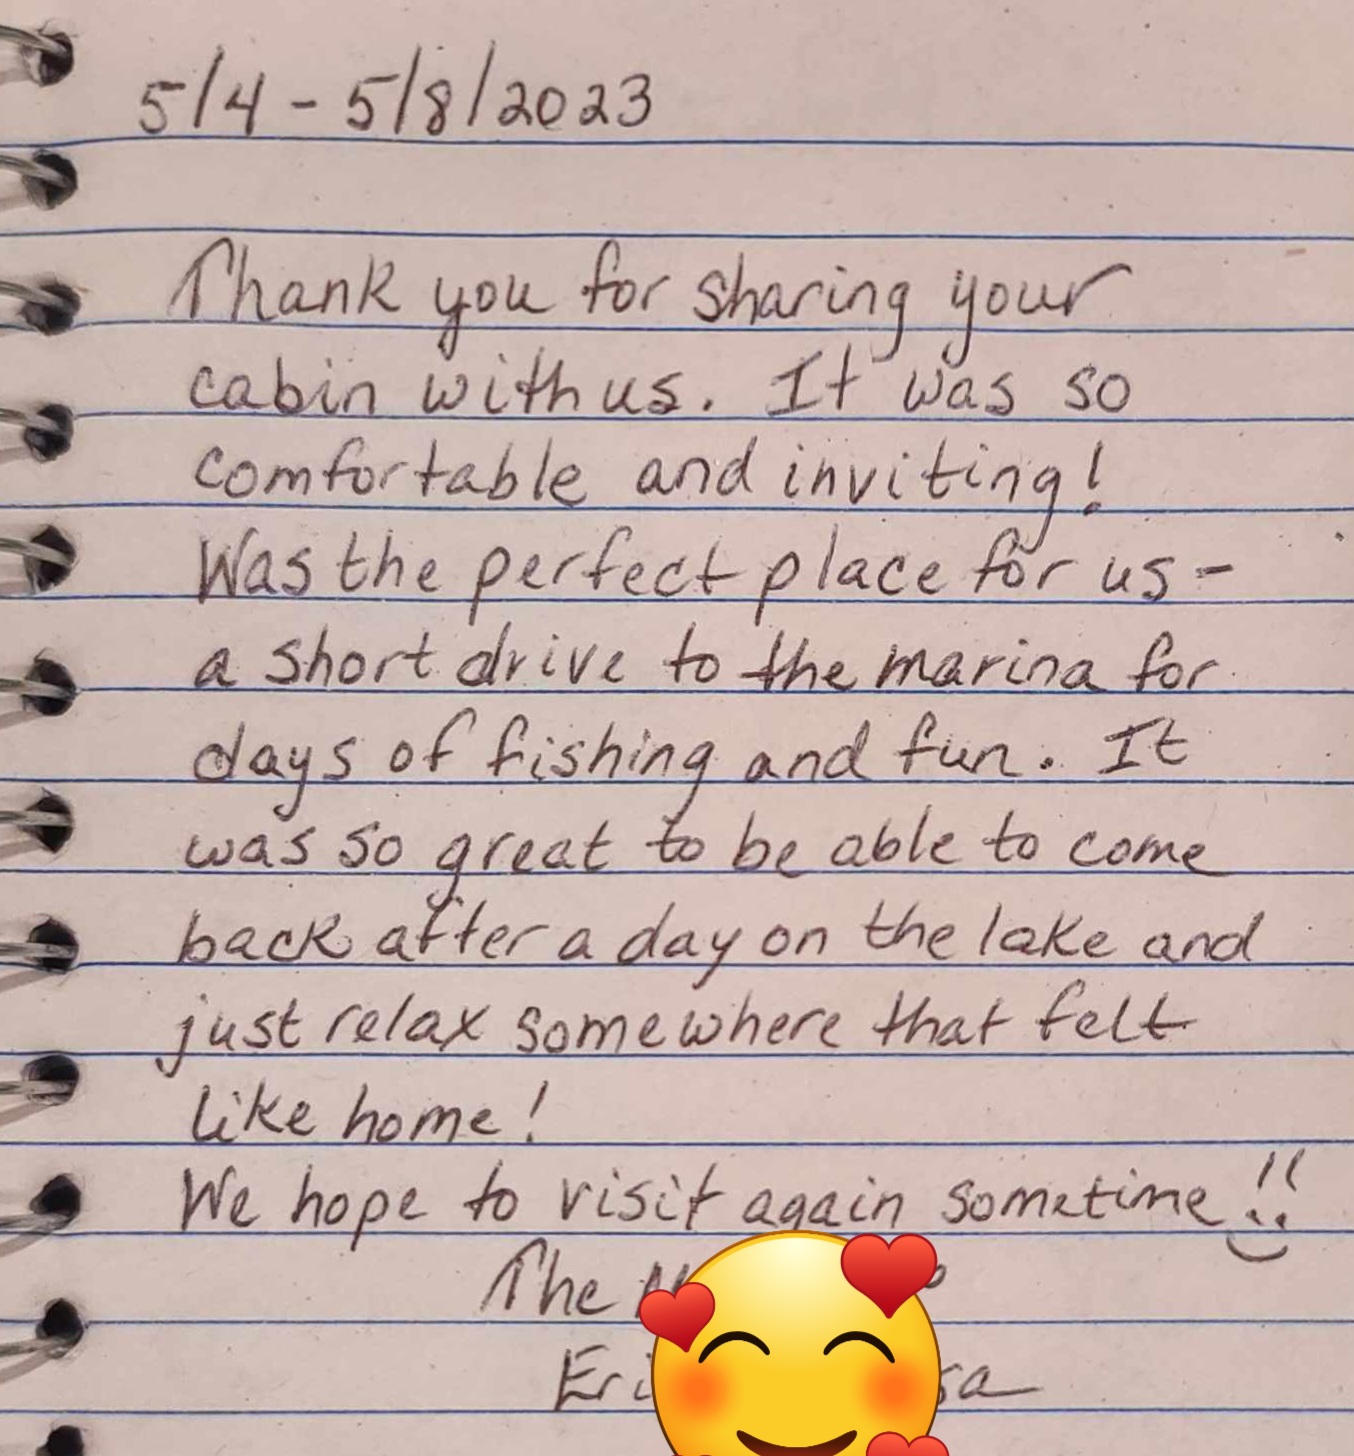 5/4 - 5/8/2023
Thank you for sharing your
cabin with us. It was so
comfortable and inviting!
Was the perfect place for us -
a short drive to the marina for
days of fishing and fun. It
was so great to be able to come
back after a day on the lake and
just relax somewhere that felt
like home!
We hope to visit again sometime!!
The